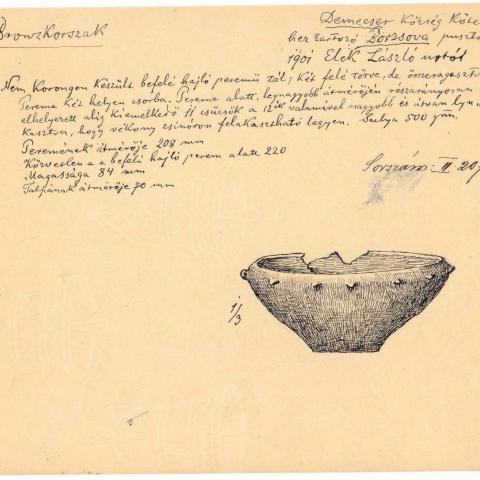 Bronzkorszak
Demecser Község Köte
hez tartozó Borzsova puszt
1901 Elek László
Nem Korongon Készült befelé hajló peremü tál, Két felé törve, de ömeragasztv
Pereme két helyen csorba. Pereme alatt, legnagyobb átmérőjén részarányosan
elhelyezett alig Kiemelkedő 11 csücsök a 12ik valamivel nagyobb és átvan lyu
kasztva, hogy vékony zsinóron felakasztható legyen. Sulya 500 gm.
Peremének átmérője 208 mm
Közvetlen a befelé hajló perem alatt 220
Magassága 84 mm
Talpának átmérője 70 mm
Sorszám: II 20
1/3